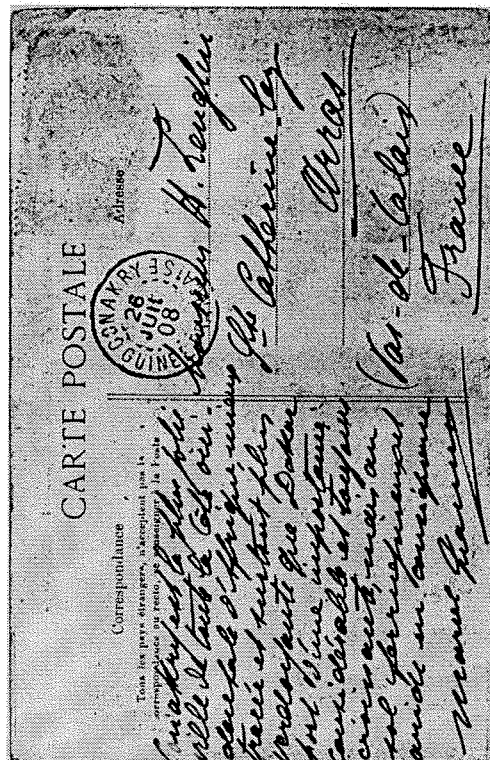 CARTE POSTALE
Correspondance
Adresse
Tous les pays étrangers, n'acceptent pas la
correspondance au recto, se renseigner à la Poste
Conakry est la plus jolie
ville de toute la Côte occi-
dentale d'Afrique mieux
tracée et surtout plus
verdoyante que Dakar
port d'une importance
considérable et toujours
croissante, mais au
sol ferrugineux et
aride en conséquence
Marcel
CONAKRY
26
JUIL
08
GUINÉE FRANÇAISE
H.
Ste Catherine-lez
Arras
(Pas-de-Calais)
France